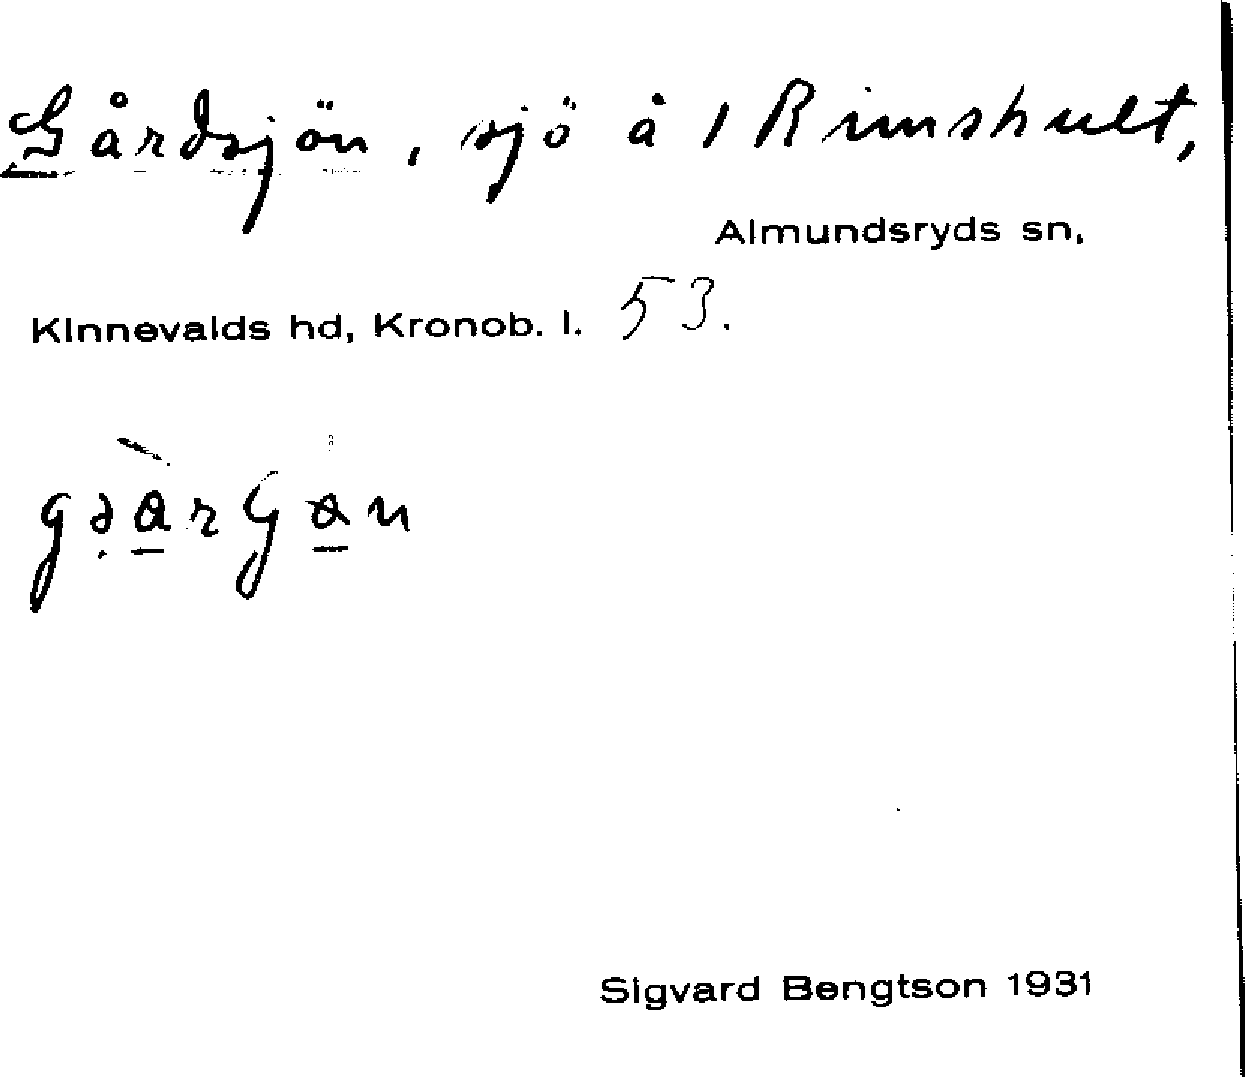 Gårdsjön, sjö å 1 Rimshult,
Almundsryds sn,
Kinnevalds hd, Kronob. l. 53.
Sigvard Bengtson 1931